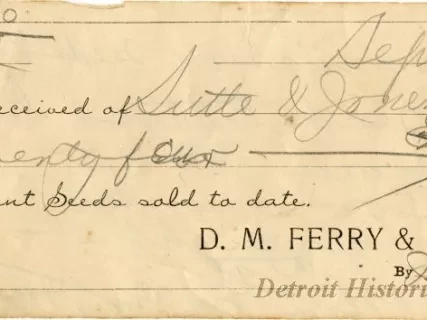 Sep
eceived of Sutte & Jones
enty four
nt Seeds sold to date.
D. M. FERRY &
By
Detroit Histori